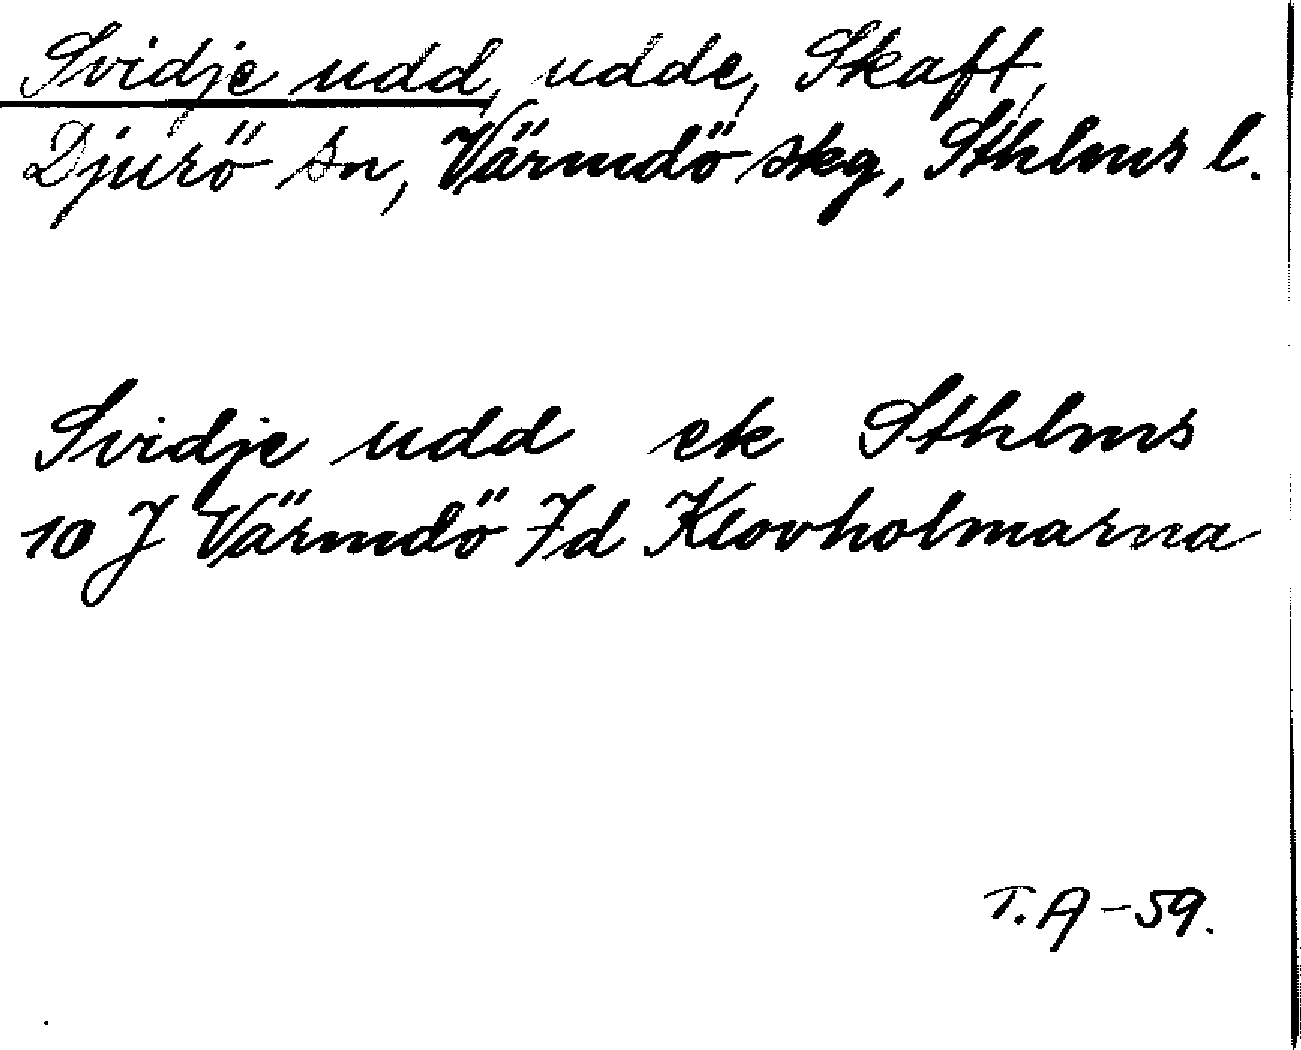 Svidje udd, udde, Skaft,
Djurö sn, Värmdö skg, Sthlms l.
Svidje udd ek Sthlms
10 J Värmdö 7d Klovholmarna
T.A-59.